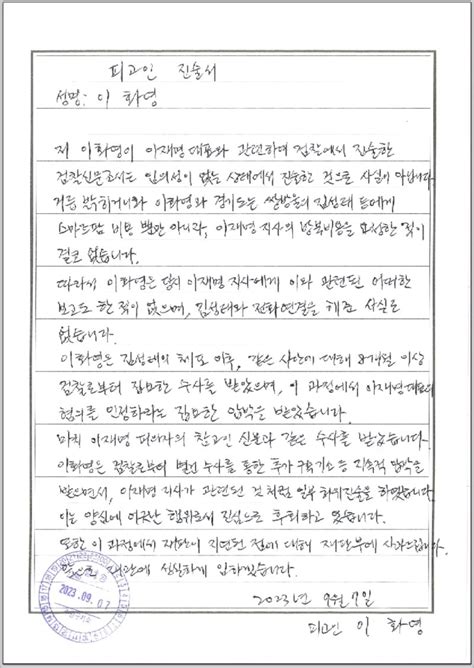 피고인 진술서
성명: 이 화영
저 이화영이 이재명 대표와 관련하여 검찰에서 진술한
검찰신문조서는 임의성이 없는 상태에서 진술한 것으로 사실이 아닙니다
거듭 밝히거니와 이화영과 경기도는 쌍방울의 김성태 등에게
스마트팜 비용 뿐만 아니라, 이재명 지사의 방북비용을 요청한 적이
결코 없습니다.
따라서 이화영은 당시 이재명 지사에게 이와 관련된 어떠한
보고도 한 적이 없으며, 김성태와 전화연결을 해준 사실도
없습니다.
이화영은 김성태의 체포 이후, 같은 사안에 대해 8개월 이상
검찰로부터 집요한 수사를 받았으며, 이 과정에서 이재명 대표의
혐의를 인정하라는 집요한 압박을 받았습니다.
마치 이재명 피의자의 참고인 신분과 같은 수사를 받았습니다.
이화영은 검찰로부터 별건 수사를 통한 추가 구속기소 등 지속적 압박을
받으면서, 이재명 지사가 관련된 것처럼 일부 허위진술을 하였습니다.
이는 양심에 어긋난 행위로서 진심으로 후회하고 있습니다.
또한 이 과정에서 재판이 지연된 점에 대해 재판부에 사과드립니다.
앞으로 재판에 성실하게 임하겠습니다.
2023.09.07
2023년 9월 7일
피고인 이 화영